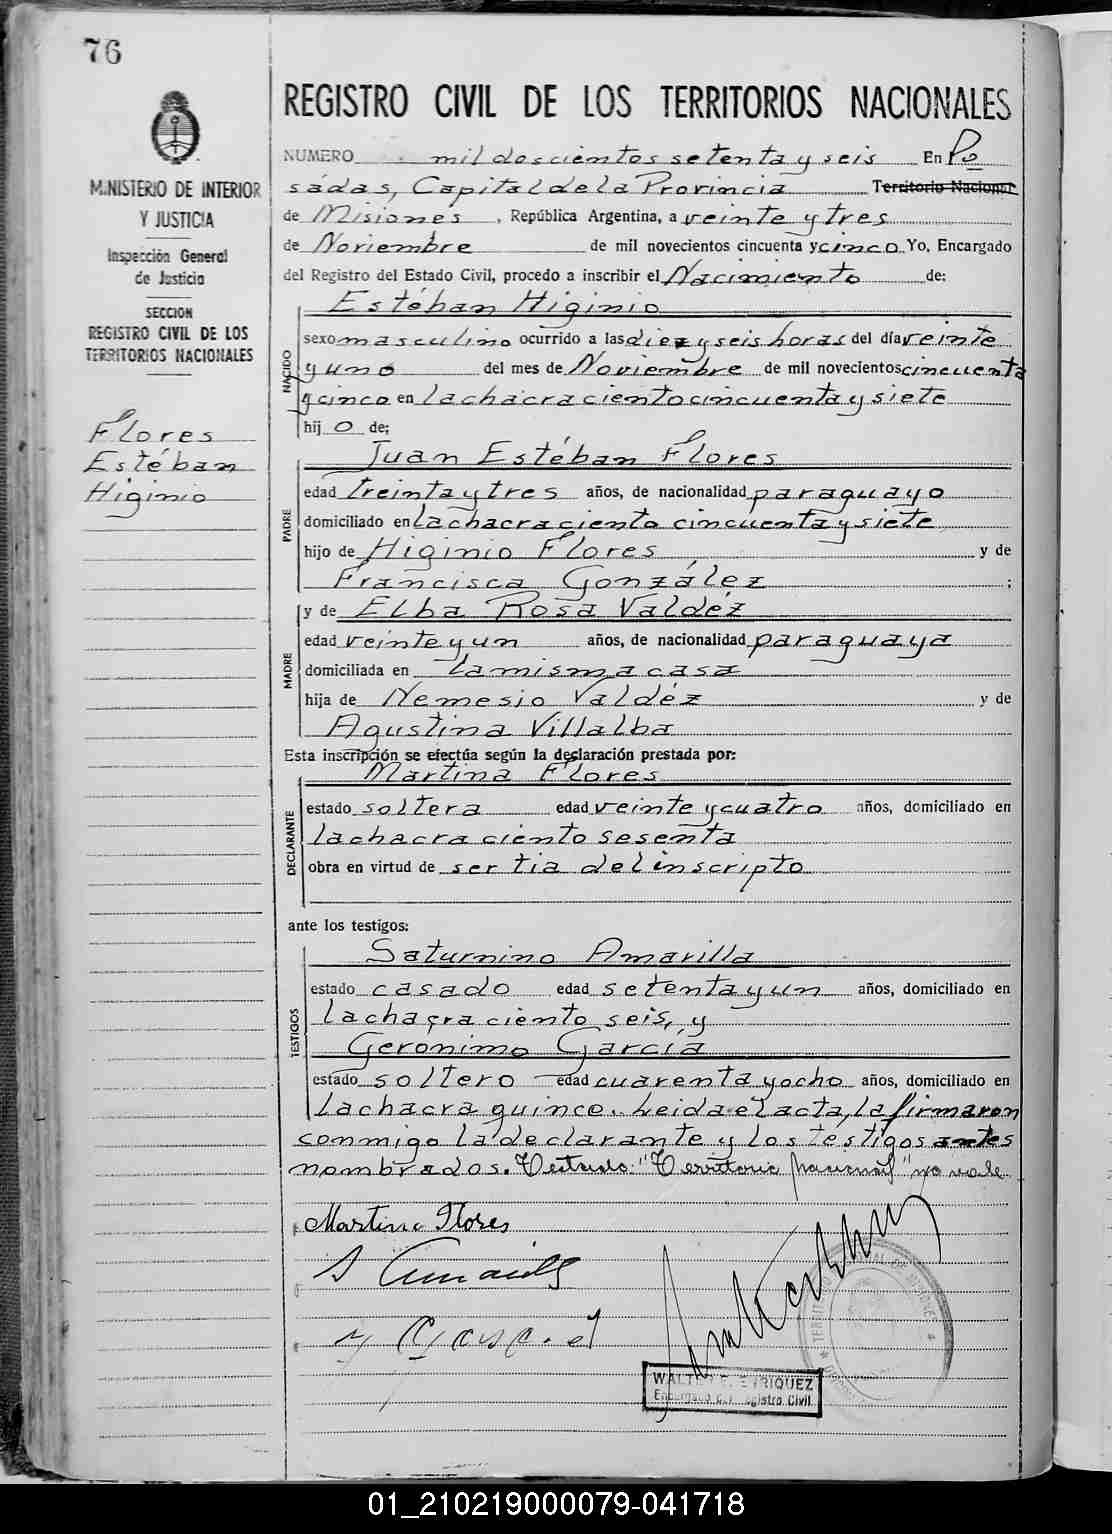 76
REGISTRO CIVIL DE LOS TERRITORIOS NACIONALES
MINISTERIO DE INTERIOR
Y JUSTICIA
Inspección General
de Justicia
SECCION
REGISTRO CIVIL DE LOS
TERRITORIOS NACIONALES
Flores
Estéban
Higinio
NUMERO mil doscientos setenta y seis En Po
sadas, Capital de la Provincia Territorio Nacional
de Misiones, República Argentina, a veinte y tres
de Noviembre de mil novecientos cincuenta y cinco Yo, Encargado
del Registro del Estado Civil, procedo a inscribir el Nacimiento de:
NACIDO
Estéban Higinio
sexo masculino ocurrido a las diez y seis horas del día veinte
y uno del mes de Noviembre de mil novecientos cincuenta
y cinco en la chacra ciento cincuenta y siete
hijo de:
PADRE
Juan Estéban Flores
edad treinta y tres años, de nacionalidad paraguayo
domiciliado en la chacra ciento cincuenta y siete
hijo de Higinio Flores y de
Francisca González ;
MADRE
y de Elba Rosa Valdéz
edad veinte y un años, de nacionalidad paraguaya
domiciliada en la misma casa
hija de Nemesio Valdéz y de
Agustina Villalba
Esta inscripción se efectúa según la declaración prestada por:
DECLARANTE
Martina Flores
estado soltera edad veinte y cuatro años, domiciliado en
la chacra ciento sesenta
obra en virtud de ser tia del inscripto
ante los testigos:
TESTIGOS
Saturnino Amarilla
estado casado edad setenta y un años, domiciliado en
la chacra ciento seis, y
Gerónimo García
estado soltero edad cuarenta y ocho años, domiciliado en
la chacra quince. Leida el acta, la firmaron
conmigo la declarante y los testigos antes
nombrados. Testado: "Territorio Nacional" no vale
Martina Flores
S Amarilla
WALTER E. ENRIQUEZ
Encargado del Registro Civil
01_210219000079-041718